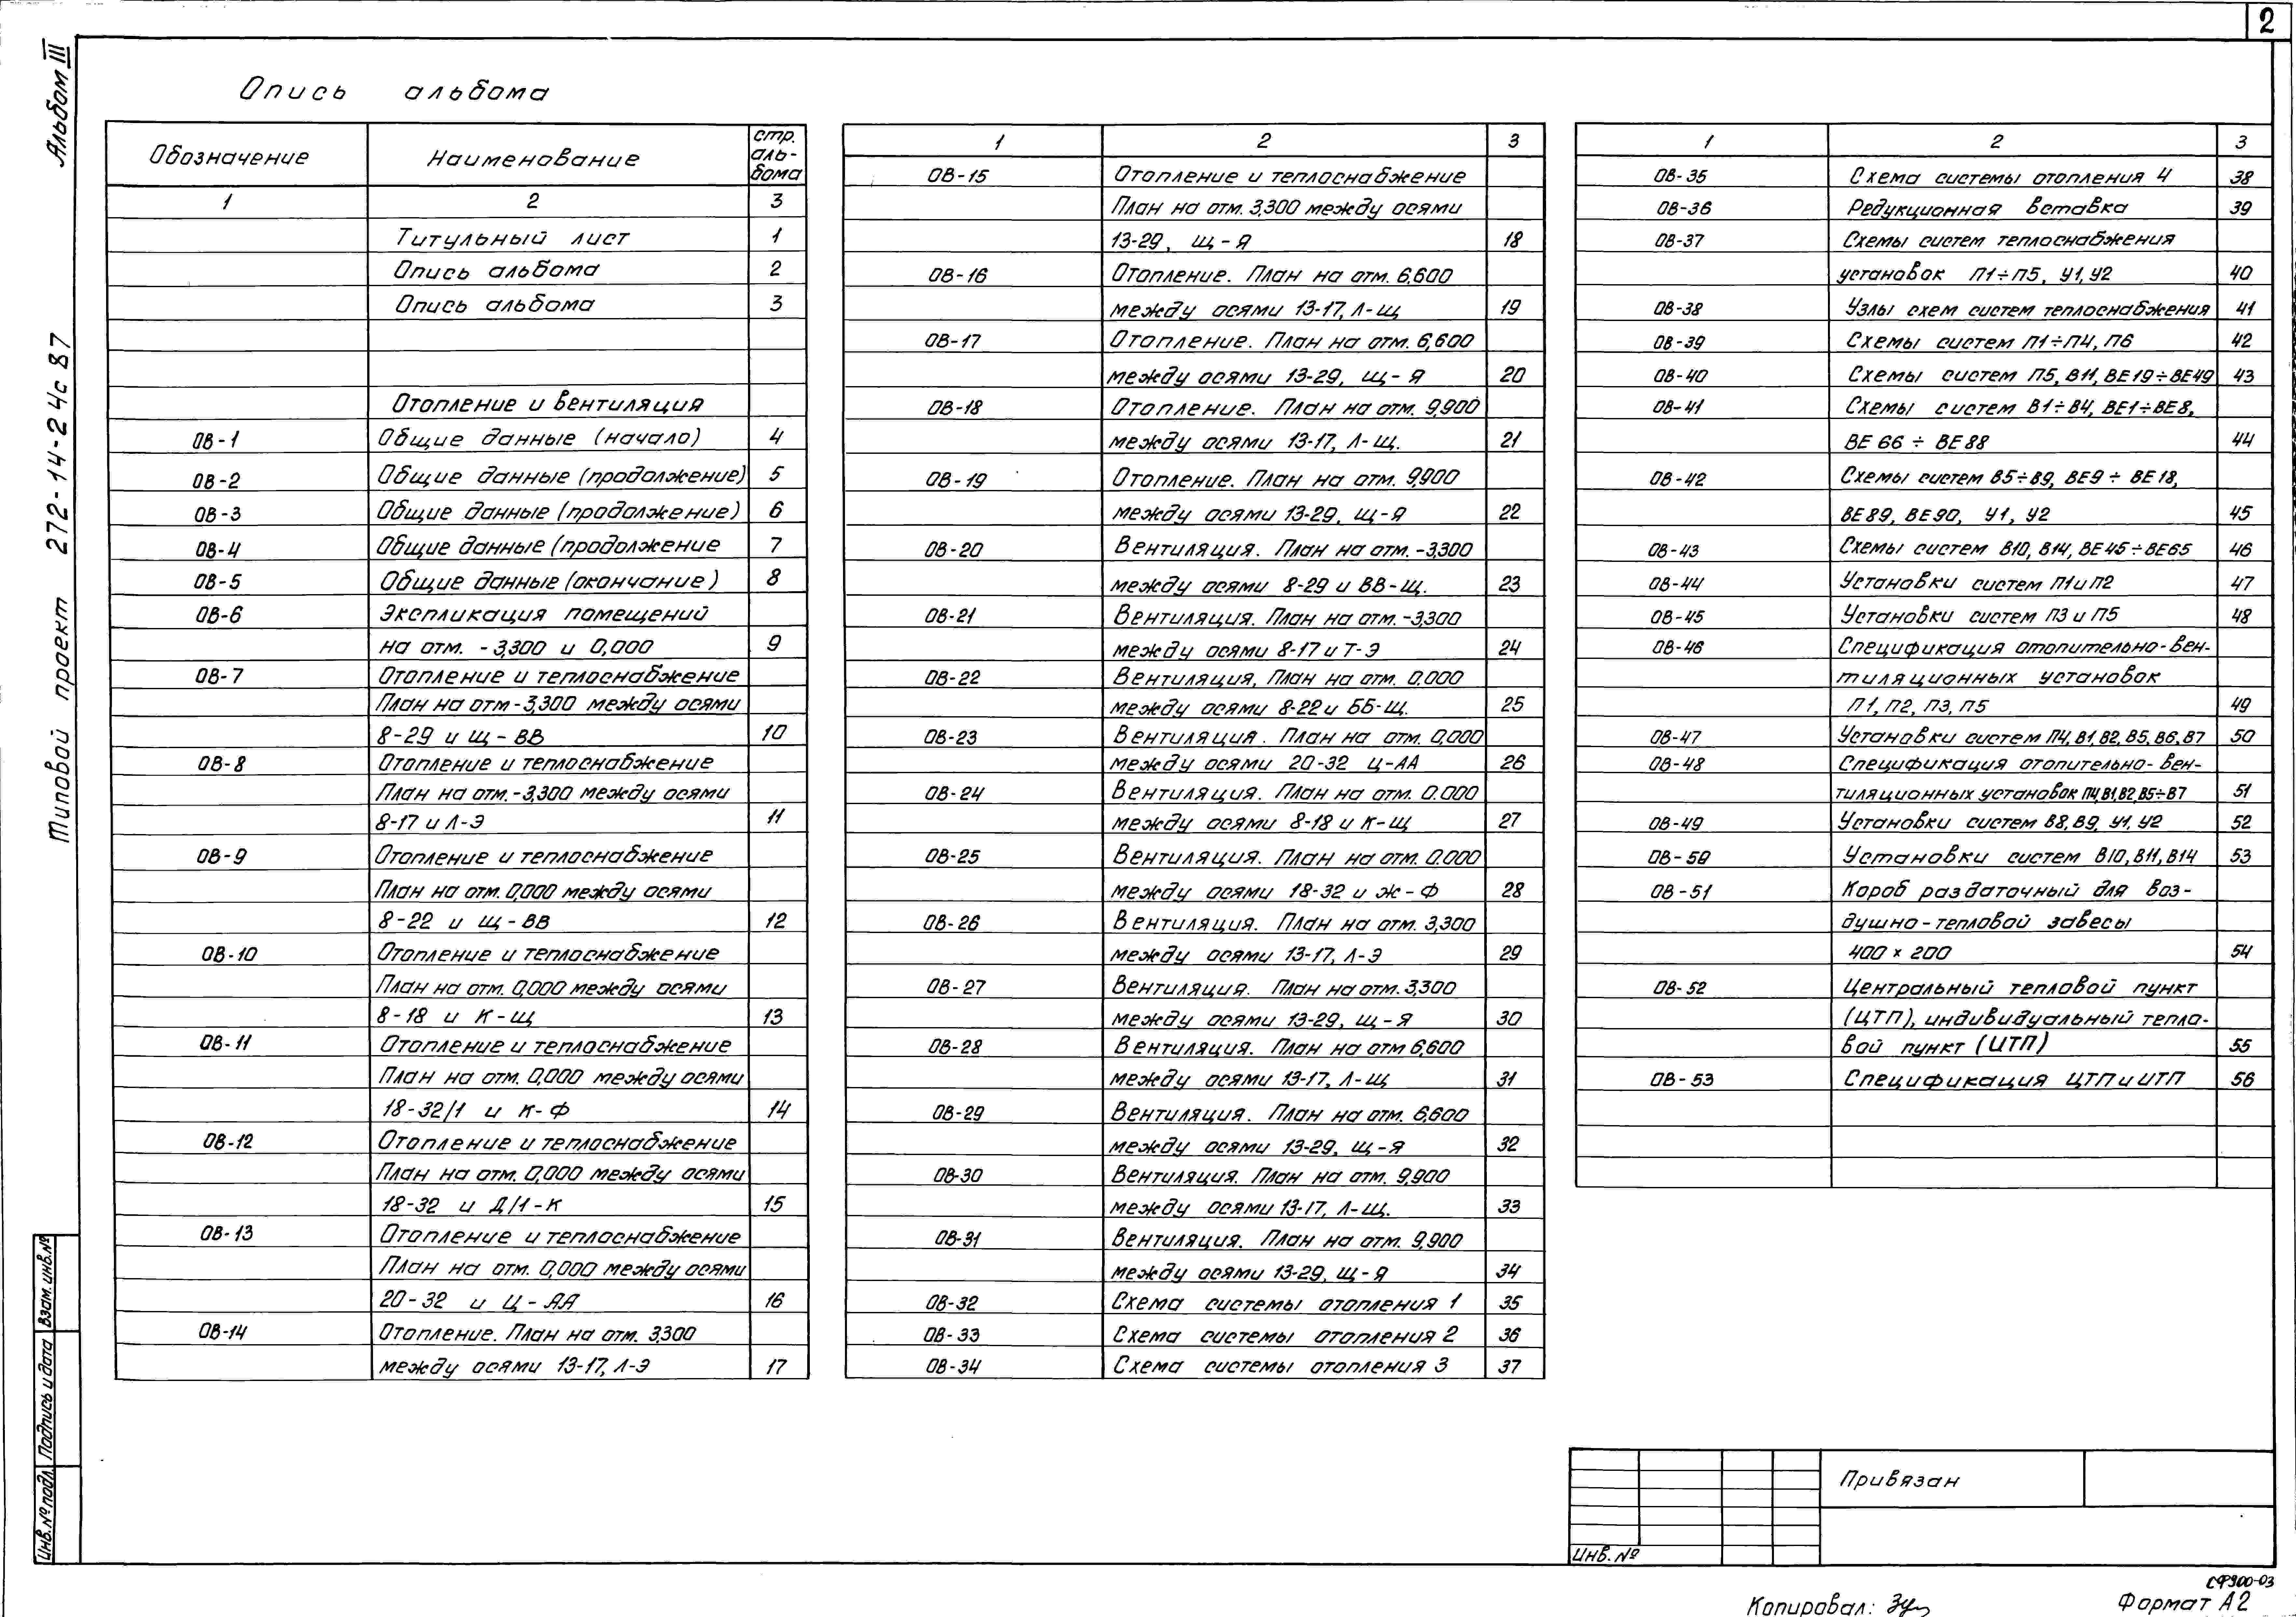 2
Альбом III
Типовой проект 272-14-24с 87
Опись альбома
Обозначение Наименование стр. аль-бома
1 2 3
Титульный лист 1
Опись альбома 2
Опись альбома 3
Отопление и вентиляция
ОВ-1 Общие данные (начало) 4
ОВ-2 Общие данные (продолжение) 5
ОВ-3 Общие данные (продолжение) 6
ОВ-4 Общие данные (продолжение 7
ОВ-5 Общие данные (окончание) 8
ОВ-6 Экспликация помещений
на отм. -3,300 и 0,000 9
ОВ-7 Отопление и теплоснабжение
План на отм -3,300 между осями
8-29 и Щ-ВВ 10
ОВ-8 Отопление и теплоснабжение
План на отм. -3,300 между осями
8-17 и Л-Э 11
ОВ-9 Отопление и теплоснабжение
План на отм. 0,000 между осями
8-22 и Щ-ВВ 12
ОВ-10 Отопление и теплоснабжение
План на отм. 0,000 между осями
8-18 и К-Щ 13
ОВ-11 Отопление и теплоснабжение
План на отм. 0,000 между осями
18-32/1 и К-Ф 14
ОВ-12 Отопление и теплоснабжение
План на отм. 0,000 между осями
18-32 и Д/1-К 15
ОВ-13 Отопление и теплоснабжение
План на отм. 0,000 между осями
20-32 и Ц-АА 16
ОВ-14 Отопление. План на отм. 3,300
между осями 13-17, Л-Э 17
1 2 3
ОВ-15 Отопление и теплоснабжение
План на отм. 3,300 между осями
13-29, Щ-Я 18
ОВ-16 Отопление. План на отм. 6,600
между осями 13-17, Л-Щ 19
ОВ-17 Отопление. План на отм. 6,600
между осями 13-29, Щ-Я 20
ОВ-18 Отопление. План на отм. 9,900
между осями 13-17, Л-Щ. 21
ОВ-19 Отопление. План на отм. 9,900
между осями 13-29, Щ-Я 22
ОВ-20 Вентиляция. План на отм. -3,300
между осями 8-29 и ВВ-Щ. 23
ОВ-21 Вентиляция. План на отм. -3,300
между осями 8-17 и Т-Э 24
ОВ-22 Вентиляция, План на отм. 0,000
между осями 8-22 и ББ-Щ. 25
ОВ-23 Вентиляция. План на отм. 0,000
между осями 20-32 Ц-АА 26
ОВ-24 Вентиляция. План на отм. 0.000
между осями 8-18 и К-Щ 27
ОВ-25 Вентиляция. План на отм. 0.000
между осями 18-32 и Ж-Ф 28
ОВ-26 Вентиляция. План на отм. 3,300
между осями 13-17, Л-Э 29
ОВ-27 Вентиляция. План на отм. 3,300
между осями 13-29, Щ-Я 30
ОВ-28 Вентиляция. План на отм 6,600
между осями 13-17, Л-Щ 31
ОВ-29 Вентиляция. План на отм. 6,600
между осями 13-29, Щ-Я 32
ОВ-30 Вентиляция. План на отм. 9,900
между осями 13-17, Л-Щ. 33
ОВ-31 Вентиляция. План на отм. 9,900
между осями 13-29, Щ-Я 34
ОВ-32 Схема системы отопления 1 35
ОВ-33 Схема системы отопления 2 36
ОВ-34 Схема системы отопления 3 37
1 2 3
ОВ-35 Схема системы отопления 4 38
ОВ-36 Редукционная вставка 39
ОВ-37 Схемы систем теплоснабжения
установок П1÷П5, У1, У2 40
ОВ-38 Узлы схем систем теплоснабжения 41
ОВ-39 Схемы систем П1÷П4, П6 42
ОВ-40 Схемы систем П5, В11, ВЕ19÷ВЕ49 43
ОВ-41 Схемы систем В1÷В4, ВЕ1÷ВЕ8,
ВЕ66÷ВЕ88 44
ОВ-42 Схемы систем В5÷В9, ВЕ9÷ВЕ18,
ВЕ89, ВЕ90, У1, У2 45
ОВ-43 Схемы систем В10, В14, ВЕ45÷ВЕ65 46
ОВ-44 Установки систем П1 и П2 47
ОВ-45 Установки систем П3 и П5 48
ОВ-46 Спецификация отопительно-вен-
тиляционных установок
П1, П2, П3, П5 49
ОВ-47 Установки систем П4, В1, В2, В5, В6, В7 50
ОВ-48 Спецификация отопительно-вен-
тиляционных установок П4, В1, В2, В5÷В7 51
ОВ-49 Установки систем В8, В9, У1, У2 52
ОВ-50 Установки систем В10, В11, В14 53
ОВ-51 Короб раздаточный для воз-
душно-тепловой завесы
400 × 200 54
ОВ-52 Центральный тепловой пункт
(ЦТП), индивидуальный тепло-
вой пункт (ИТП) 55
ОВ-53 Спецификация ЦТП и ИТП 56
Взам. инв.№
Подпись и дата
Инв.№ подл.
Привязан
Инв. №
СФ900-03
Копировал:
Формат А2